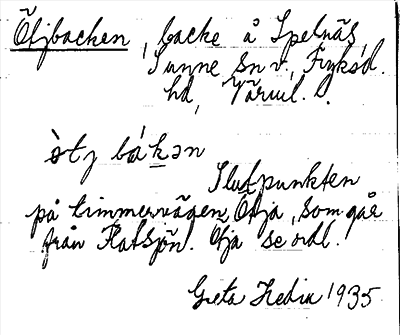 Ötjbacken, backe å Spelnäs,
Sunne sn v., Fryksd.
hd, Värml.
ò̀tj bákən
Slutpunkten
på timmervägen Ötja, som går
från Flatsjön. Ötja se ordl.
Greta Hedin 1935